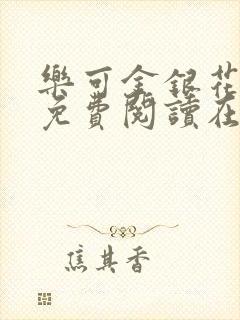 樂可金銀花
免費閱讀在
焦其香